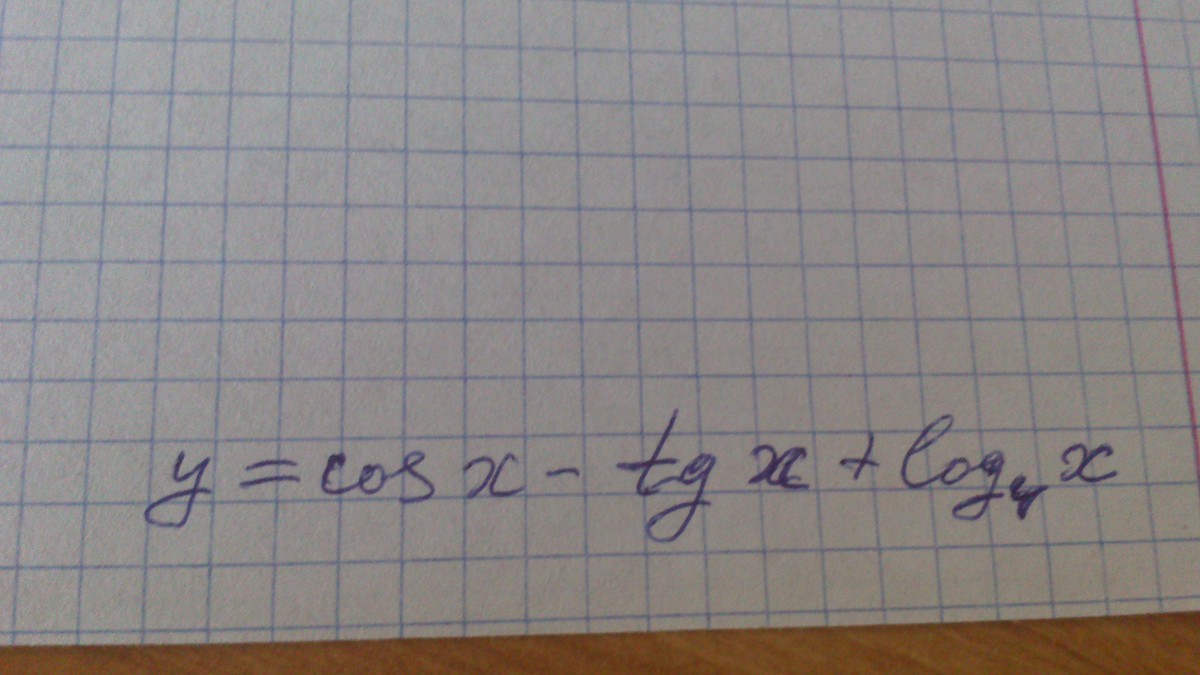 y = cos x - tg x + log₄ x